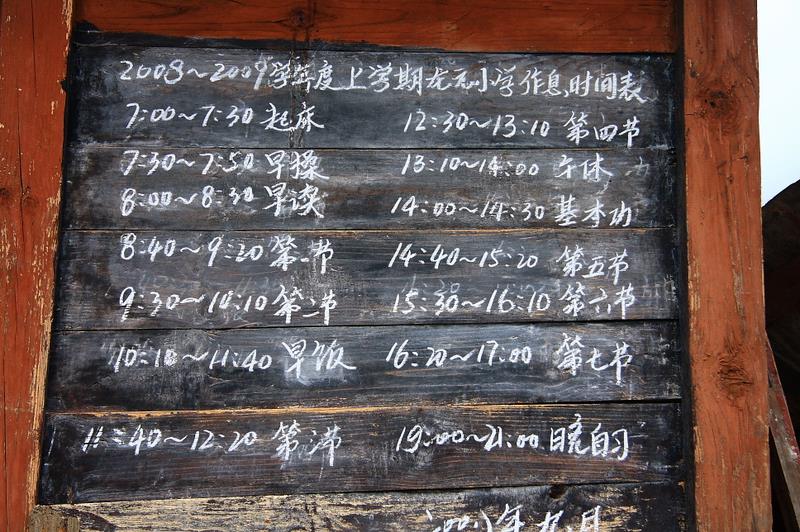 2008~2009学年度上学期龙元小学作息时间表
7:00~7:30 起床 12:30~13:10 第四节
7:30~7:50 早操 13:10~14:00 午休
8:00~8:30 早读 14:00~14:30 基本功
8:40~9:20 第一节 14:40~15:20 第五节
9:30~10:10 第二节 15:30~16:10 第六节
10:10~11:40 早饭 16:20~17:00 第七节
11:40~12:20 第三节 19:00~21:00 晚自习
年九月